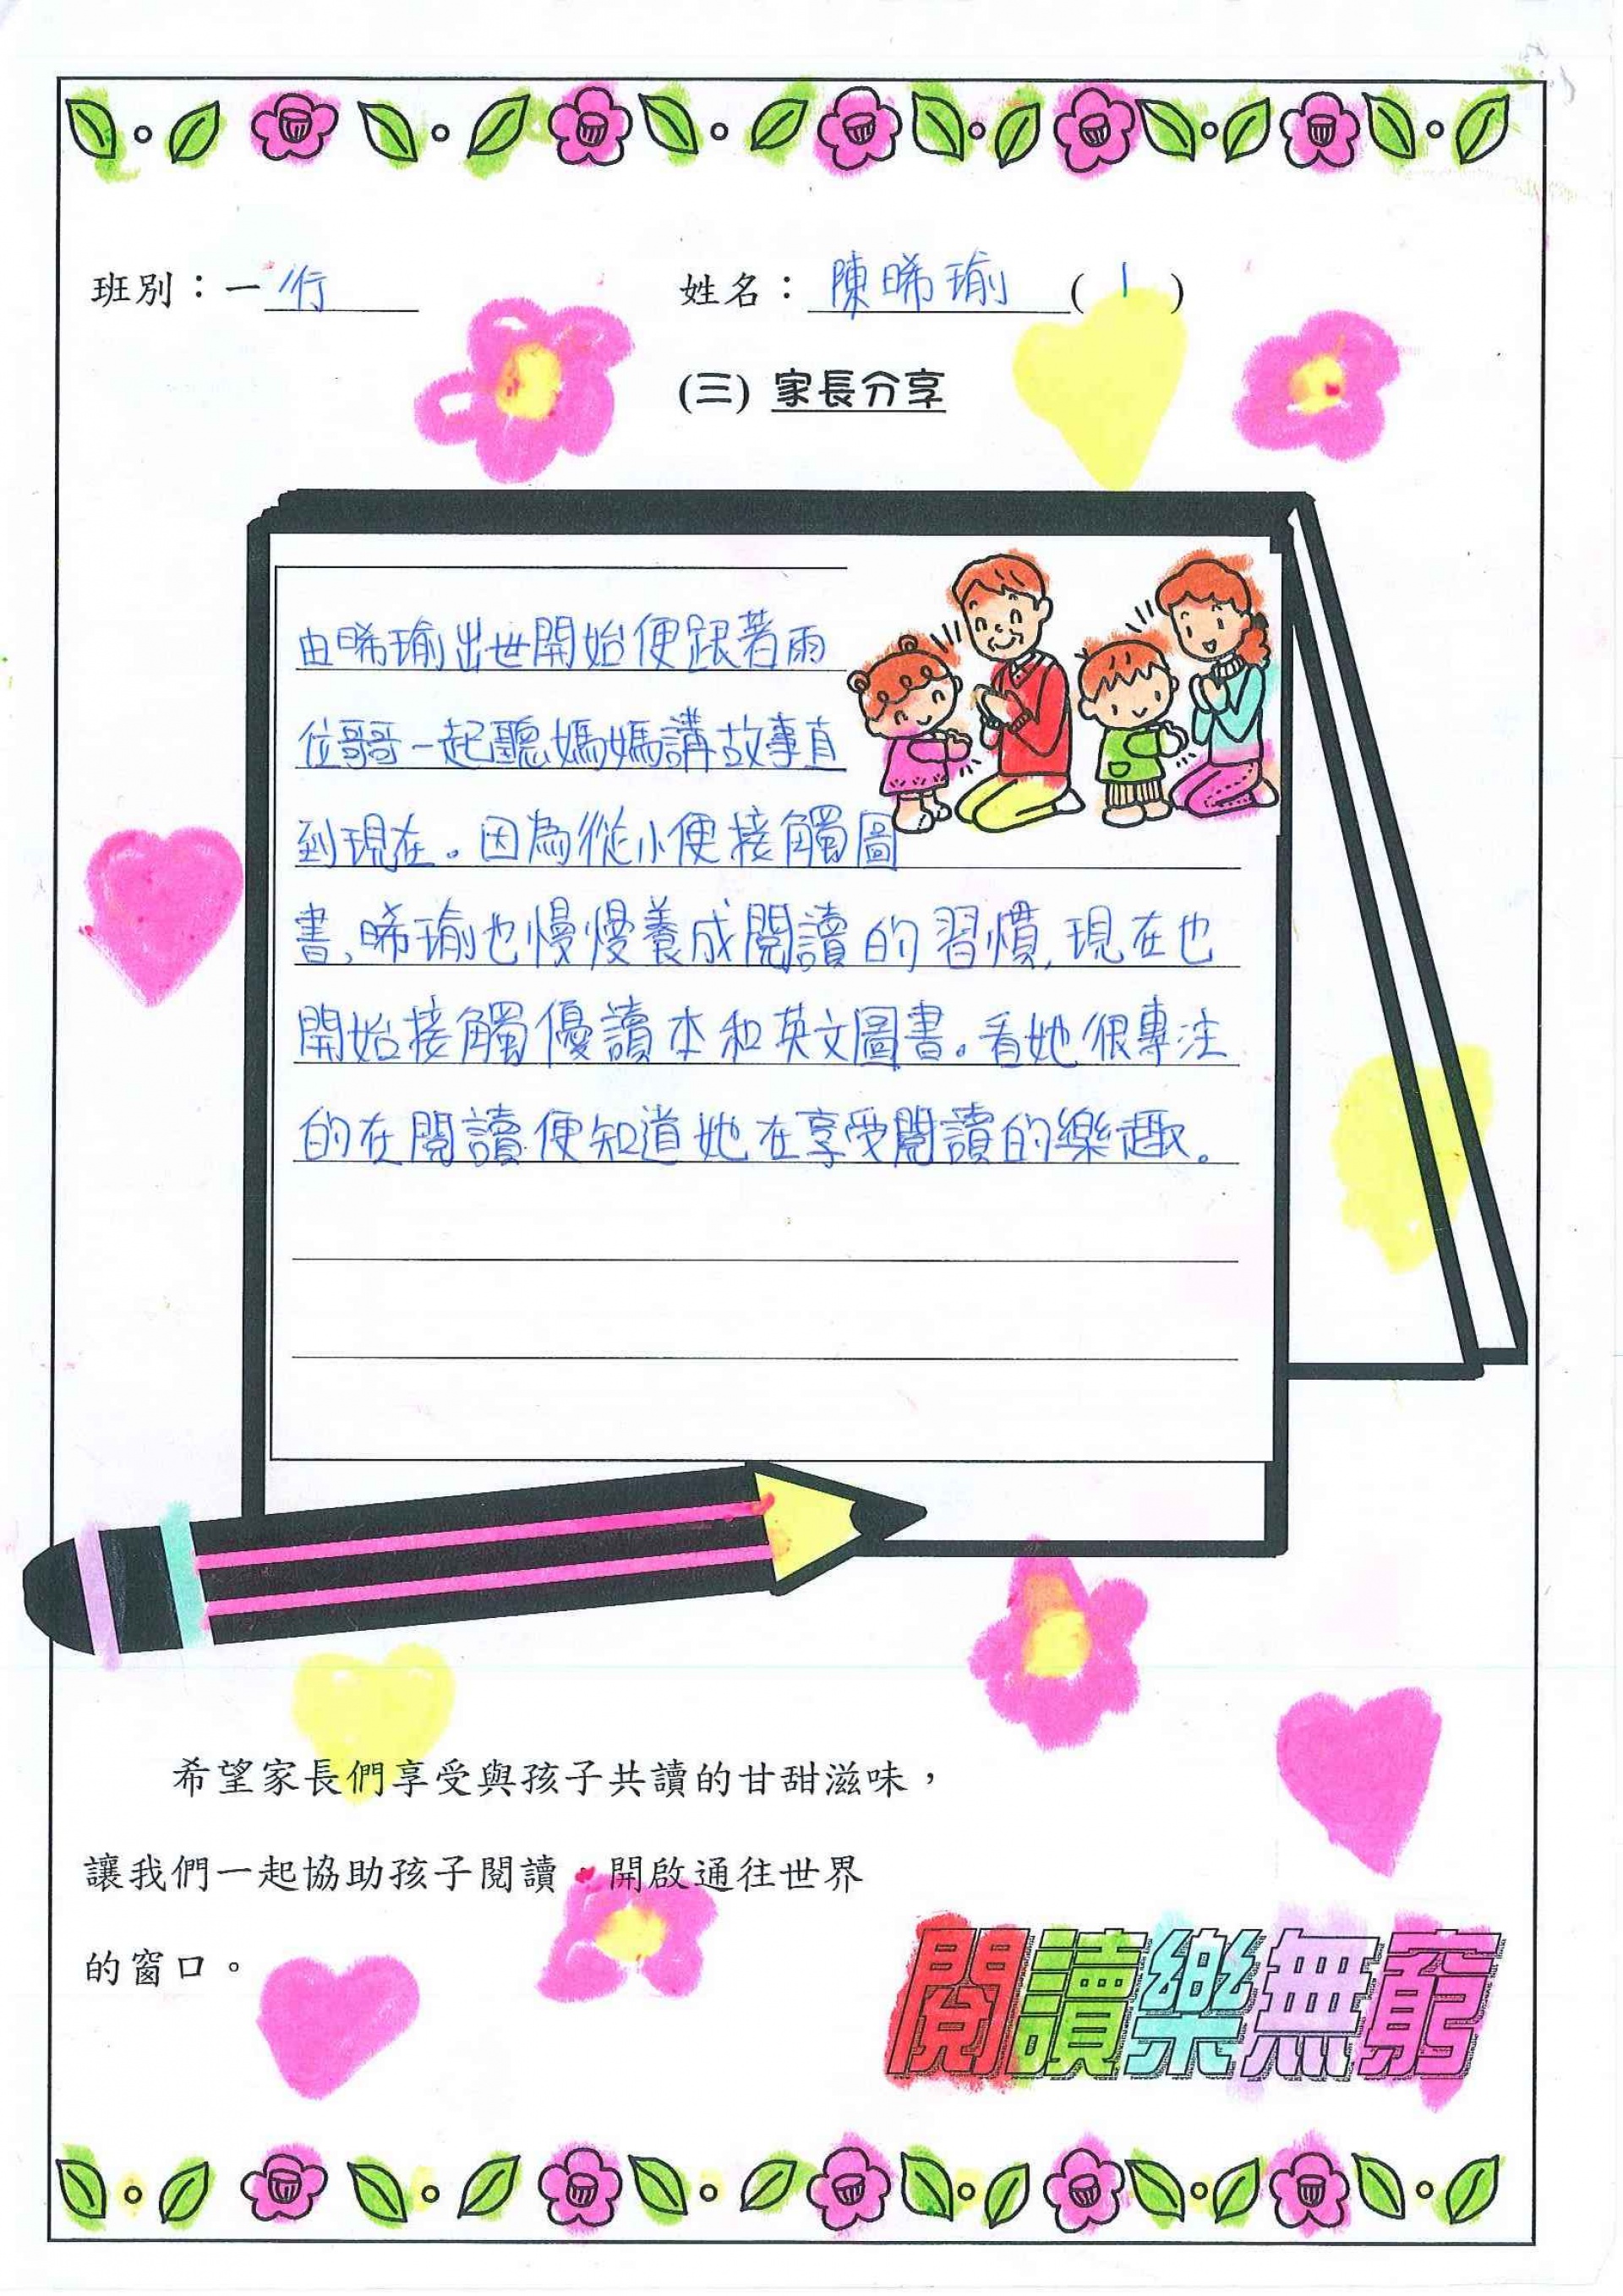 班別：一行 姓名：陳晞瑜 (1)
(三) 家長分享
由晞瑜出世開始便跟著兩
位哥哥一起聽媽媽講故事直
到現在。因為從小便接觸圖
書,晞瑜也慢慢養成閱讀的習慣,現在也
開始接觸優讀本和英文圖書。看她很專注
的在閱讀便知道她在享受閱讀的樂趣。
希望家長們享受與孩子共讀的甘甜滋味，
讓我們一起協助孩子閱讀，開啟通往世界
的窗口。
閱讀樂無窮